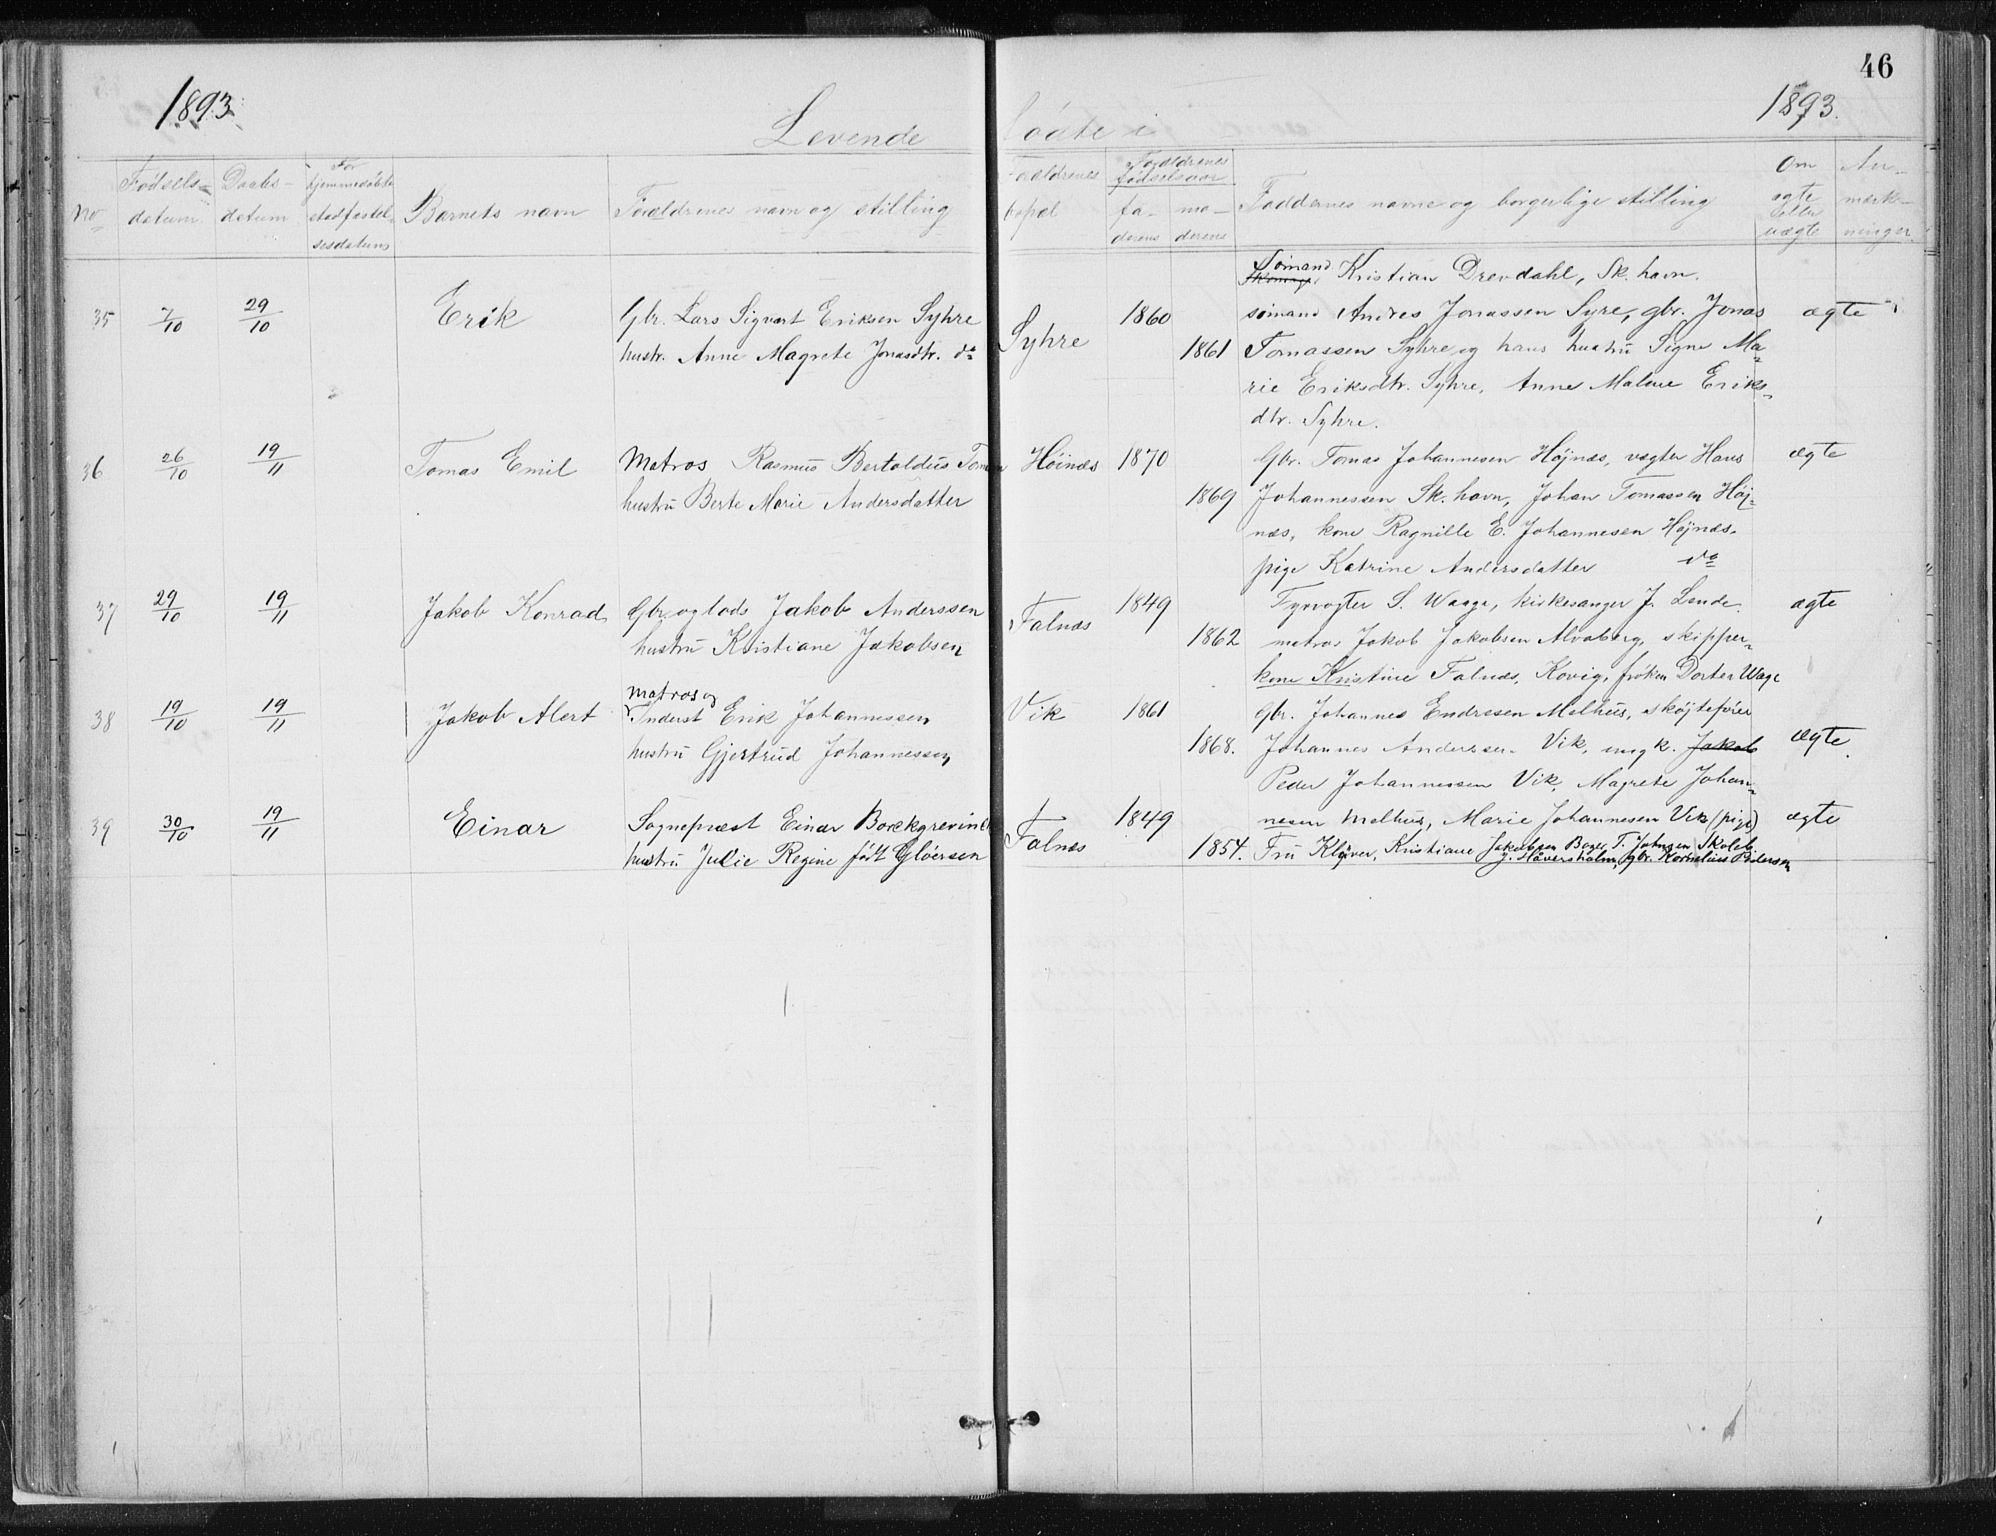 46
1893. 1893.
Levende fødte i
No Fødsels- datum. Daabs- datum For hjemmedøbte stadfæstel- sesdatum Barnets navn Forældrenes navn og stilling Forældrenes bopæl Forældrenes fødselsaar fa- derens mo- derens Faddernes navne og borgerlige stilling Om ægte eller uægte An- mærk- ninger.
Sømand Kristian Drevdahl, Sk. havn.
35 7/10 29/10 Erik Gbr. Lars Sigvart Eriksen Syhre Syhre 1860 sømand Andres Jonassen Syre, gbr. Jonas ægte
hustr. Anne Magrete Jonasdtr. do 1861 Tomassen Syhre og hans hustru Signe Ma-
rie Eriksdtr. Syhre, Anne Malene Eriks-
dtr. Syhre.
36 26/10 19/11 Tomas Emil Matros Rasmus Bertoldus Høinæs 1870 Gbr. Tomas Johannesen Højnæs, vægter Hans ægte
hustru Berte Marie Andersdatter 1869 Johannessen Sk. havn, Johan Tomassen Høj-
næs, kone Ragnille E. Johannesen Højnæs.
pige Katrine Andersdatter do
37 29/10 19/11 Jakob Konrad Gbr. og lods Jakob Anderssen Falnæs 1849 Fyrvogter S. Waage, kirkesanger J. Lende. ægte
hustru Kristiane Jakobsen 1862 matros Jakob Jakobsen Alvaberg, skipper-
kone Kristine Falnæs, Kovig, frøken Dortea Wage
38 19/10 19/11 Jakob Alert matros og Inderst Erik Johannessen Vik 1861 Gbr. Johannes Endresen Melhus, skøjtefører
hustru Gjertrud Johannessen 1868. Johannes Andersen Vik, ungk. Jakob Ægte.
Peder Johannessen Vik, Magrete Johan-
nesen Melhus, Marie Johannesen Vik (pige)
39 30/10 19/11 Einar Sogneprest Einar Borchgrevinck Falnæs 1849 ægte
hustru Julie Regine født Gløersen 1854. Frü Kløver, Kristiane Jakobsen Boger, T. Johnsen, Skoleb.
J. Håversholm, gbr. Kornelius Pedersen